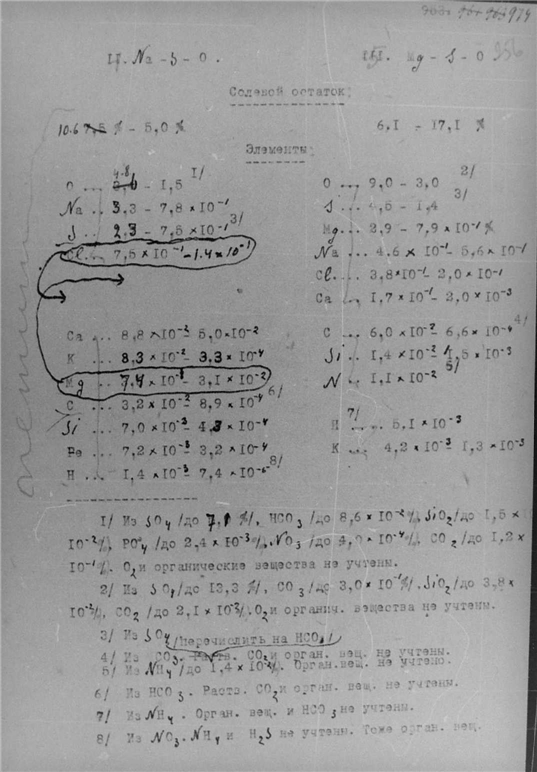 974
956
17. Na - S - O.
Mg - S - O
Солевой остаток:
10.6 7,5 % - 5,0 %
6,1 - 17,1 %
Элементы:
4.8
O ... 3,0 - 1,5 1/
O ... 9,0 - 3,0 2/
Na .. 3,3 - 7,8 × 10⁻¹
S ... 4,5 - 1,4 3/
S ... 2,3 - 7,5 × 10⁻¹ 3/
Mg... 2,9 - 7,9 × 10⁻¹ %
Cl... 7,5 × 10⁻¹ - 1.4 × 10⁻¹
Na ... 4.6 × 10⁻¹ - 5,6 × 10⁻¹
Cl... 3,8 × 10⁻¹ - 2,0 × 10⁻¹
Ca ... 1,7 × 10⁻¹ - 2,0 × 10⁻³
Ca ... 8,8 × 10⁻² - 5,0 × 10⁻²
C ... 6,0 × 10⁻² - 6,6 × 10⁻⁴ 4/
K ... 8,3 × 10⁻² - 3.3 × 10⁻⁴
Si... 1,4 × 10⁻² - 1,5 × 10⁻³
Mg ... 7.4 × 10⁻² - 3,1 × 10⁻²
N ... 1,1 × 10⁻² 5/
C ... 3,2 × 10⁻² - 8,9 × 10⁻⁴ 6/
Si ... 7,0 × 10⁻³ - 4,3 × 10⁻⁴
H .... 5,1 × 10⁻³ 7/
Fe ... 7,2 × 10⁻³ - 3,2 × 10⁻⁴
K ... 4,2 × 10⁻³ - 1,3 × 10⁻³
H ... 1,4 × 10⁻³ - 7,4 × 10⁻⁶ 8/
1/ Из SO₄ /до 7,1 %/, HCO₃ /до 8,6 × 10⁻² %/, SiO₂ /до 1,5 × 10
10⁻² %/, PO₄ /до 2,4 × 10⁻³ %/, NO₃ /до 4,0 × 10⁻⁴ %/, CO₂ /до 1,2 ×
10⁻¹ %/. O₂ и органические вещества не учтены.
2/ Из SO₄ /до 13,3 %/, CO₃ /до 3,0 × 10⁻¹ %/. SiO₂ /до 3,8 ×
10⁻² %/, CO₂ /до 2,1 × 10⁻³ %/. O₂ и органич. вещества не учтены.
3/ Из SO₄ /перечислить на HCO₃/
4/ Из CO₃. Раств. CO₂ и орган. вещ. не учтены.
5/ Из NH₄ /до 1,4 × 10⁻² %/. Орган.вещ. не учтено.
6/ Из HCO₃. Раств. CO₂ и орган. вещ. не учтены.
7/ Из NH₄. Орган. вещ. и HCO₃ не учтены.
8/ Из NO₃. NH₄ и H₂S не учтены. Тоже орган. вещ.